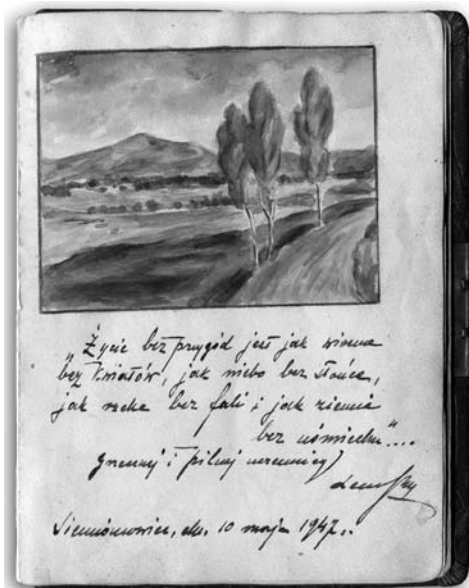 "Życie bez przygód jest jak wiosna
bez kwiatów, jak niebo bez słońca,
jak rzeka bez fali i jak ziemia
bez uśmiechu"...
grzecznej i pilnej uczennicy
Siemianowice, dn. 10 maja 1947 r.